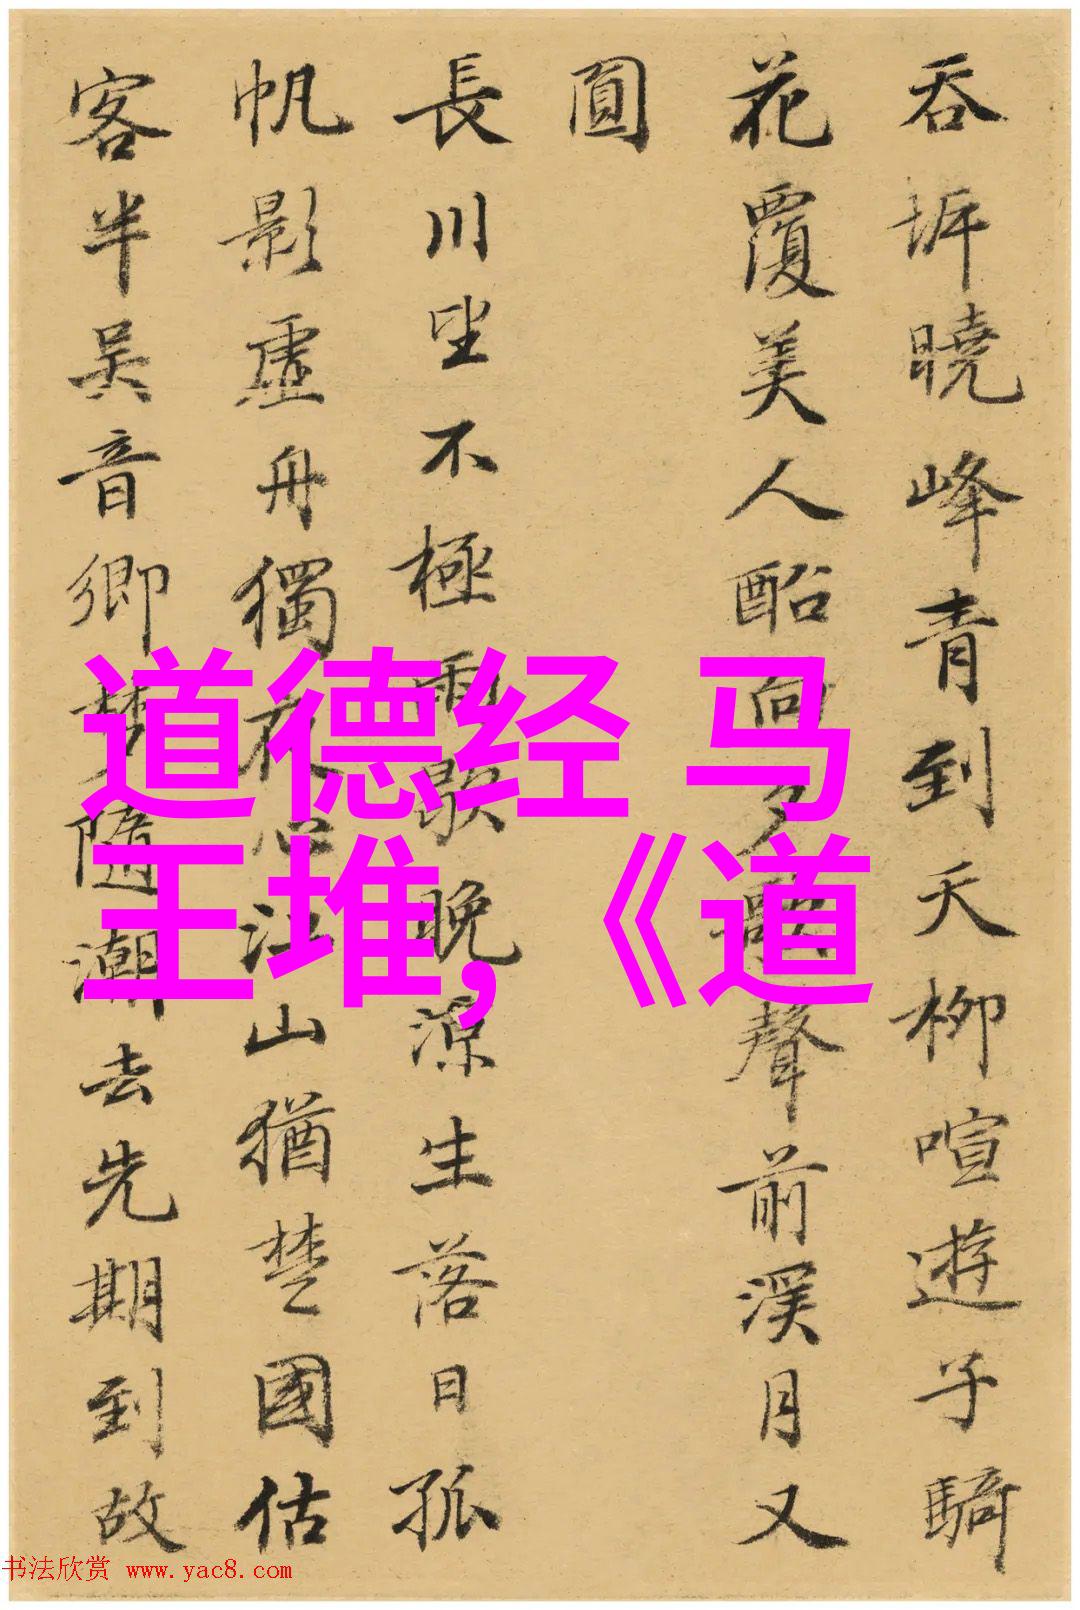 吞坼曉峰青到天柳喧遊子騎
花覆美人船向夕歌聲前溪月又
圓
長川望不極雨歇晚涼生落日孤
帆影虛舟獨夜心江山猶楚國估
客半吳音鄉夢隨潮去先期到故
道德经 马
王堆,《道
书法欣赏 www.yac8.com